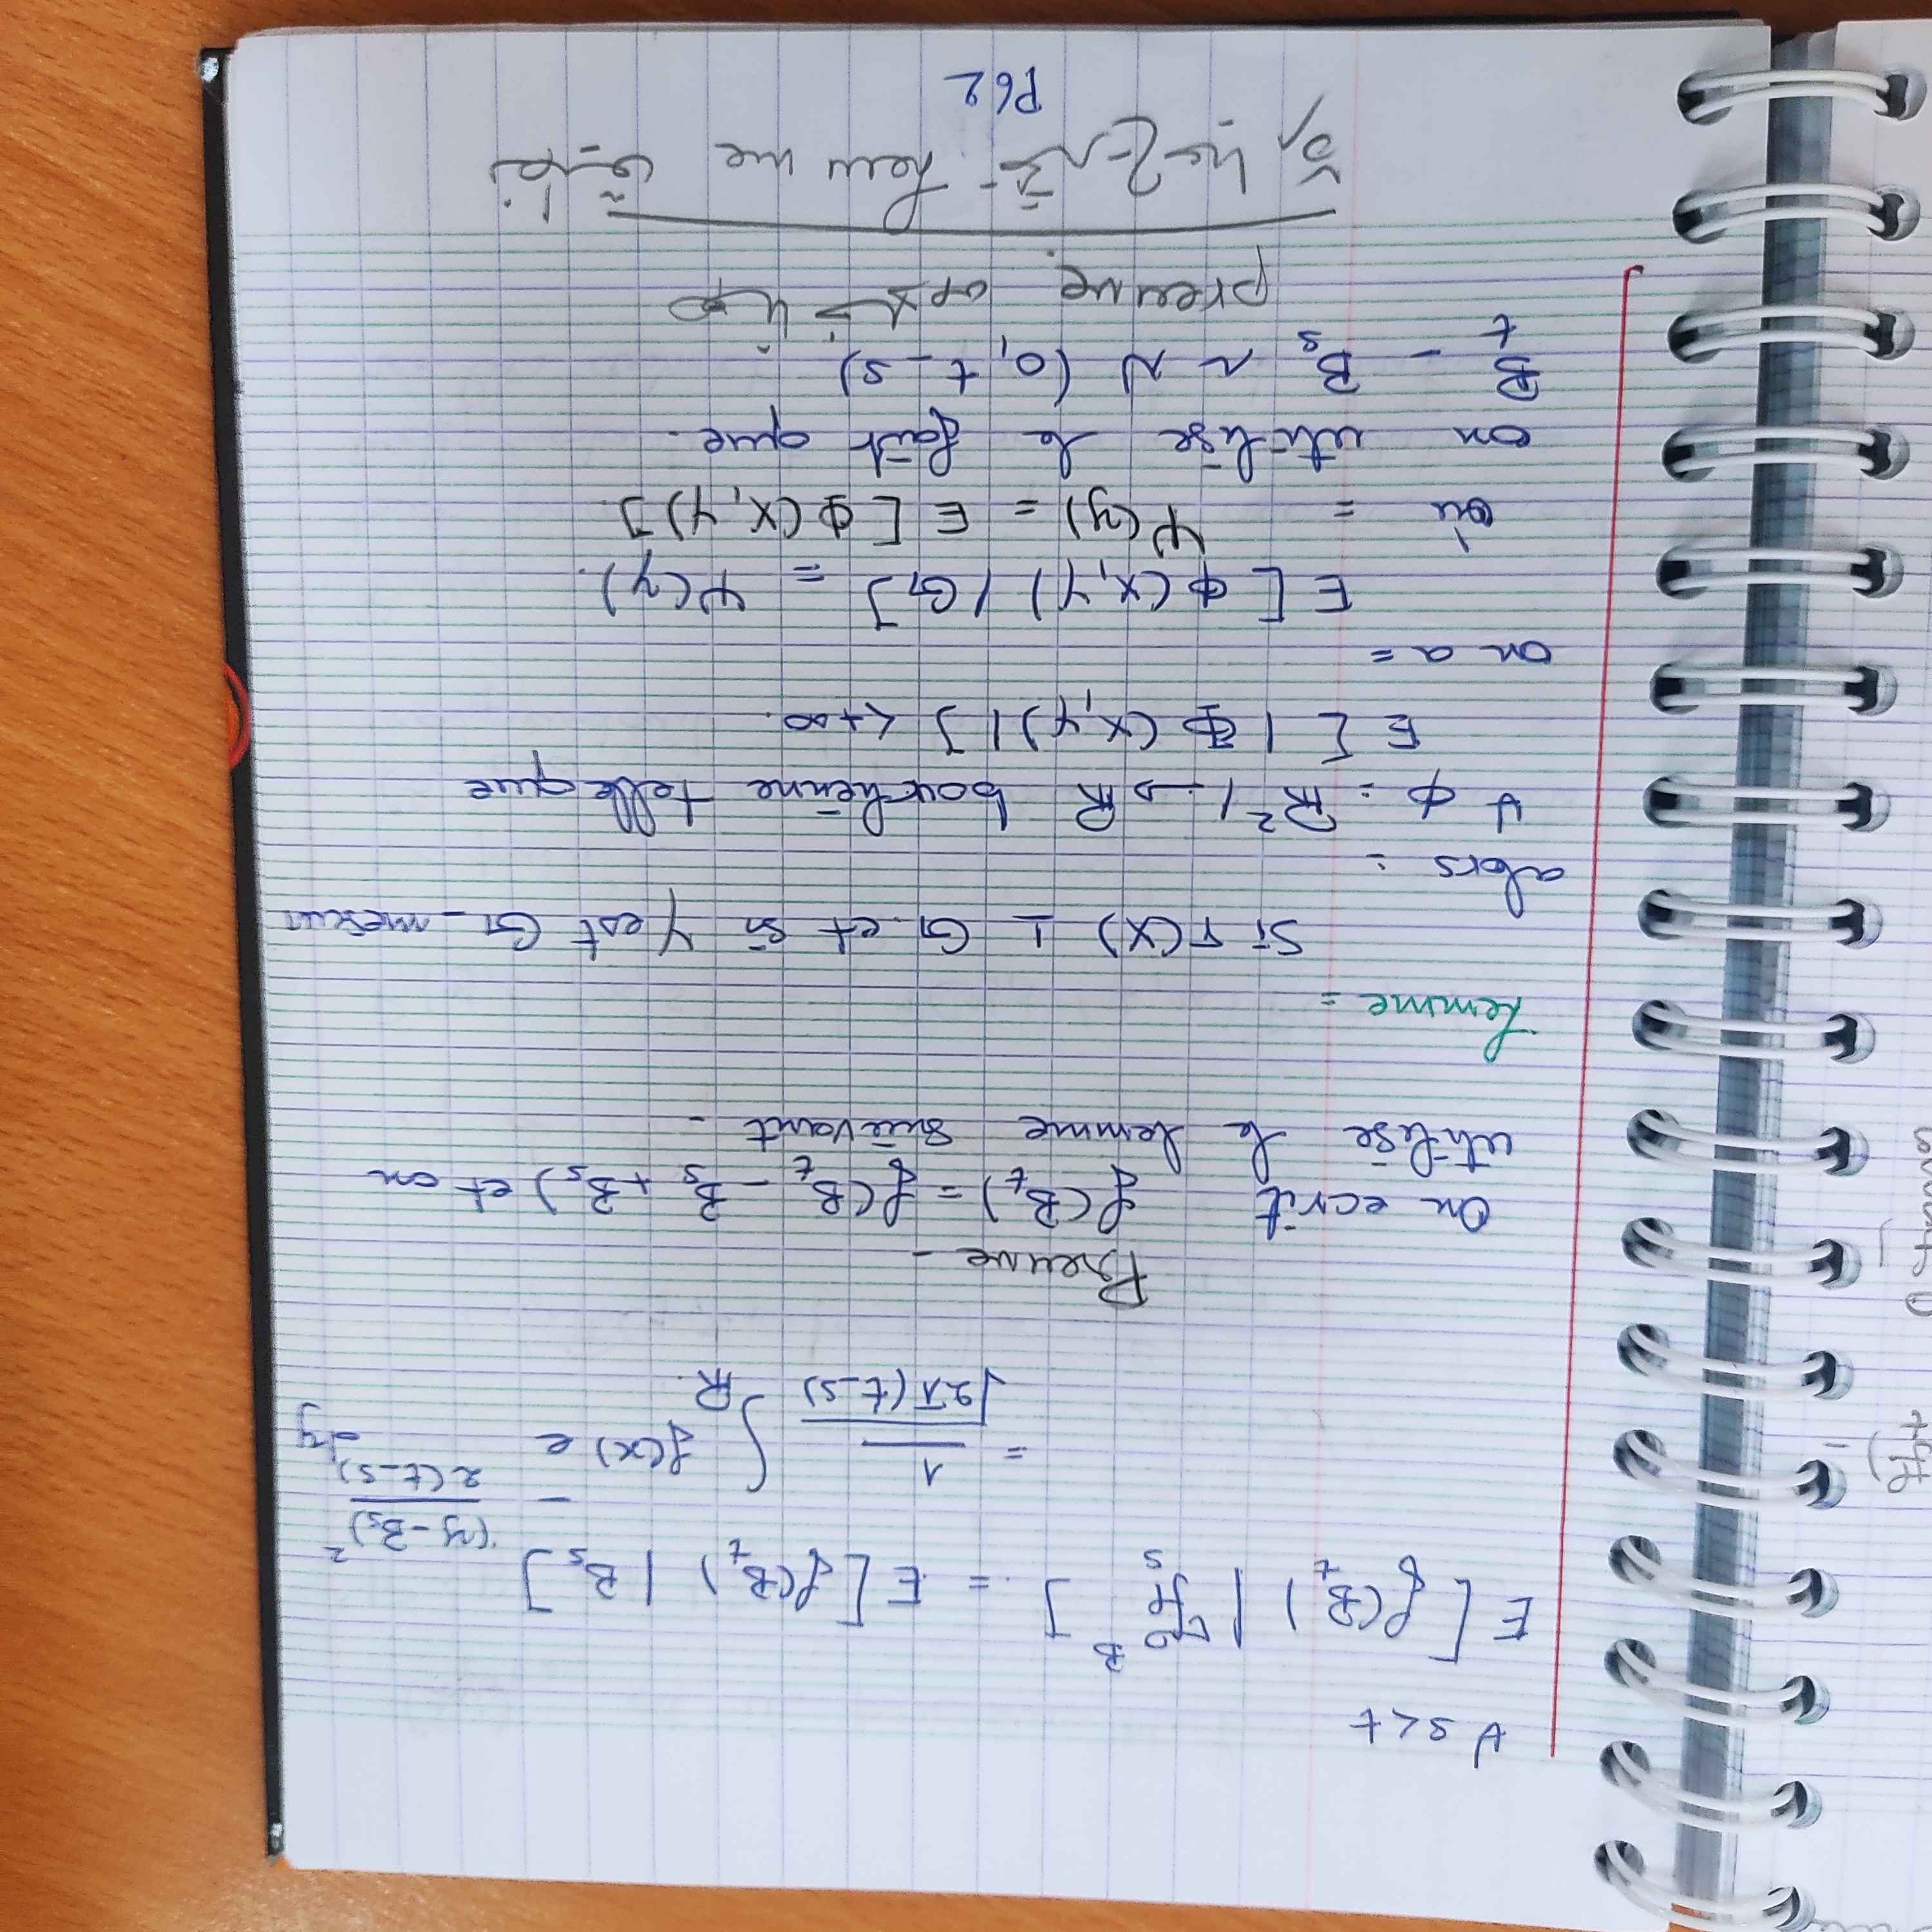 ∀ s<t
E [ f(B_t) | ℱ_s^B ] = E [ f(B_t) | B_s ]
= 1/√(2π(t-s)) ∫_ℝ f(x) e^{-(y-B_s)²/(2(t-s))} dy
Preuve -
On ecrit f(B_t) = f(B_t - B_s + B_s) et on
utilise le lemme suivant -
Lemme =
Si T(X) ⊥ G et si Y est G-mesur
alors :
∀ ϕ : ℝ² ↦ ℝ borelienne telle que
E [ | Φ (X,Y) | ] < +∞.
on a =
E [ ϕ (X,Y) / G ] = Ψ(y).
où = Ψ(y) = E [ ϕ (X,Y) ]
on utilise le fait que.
B_t - B_s ~ N (0, t-s)
هنا خلاص preuve.
نطبق Lemme تخرج عبارة
P62